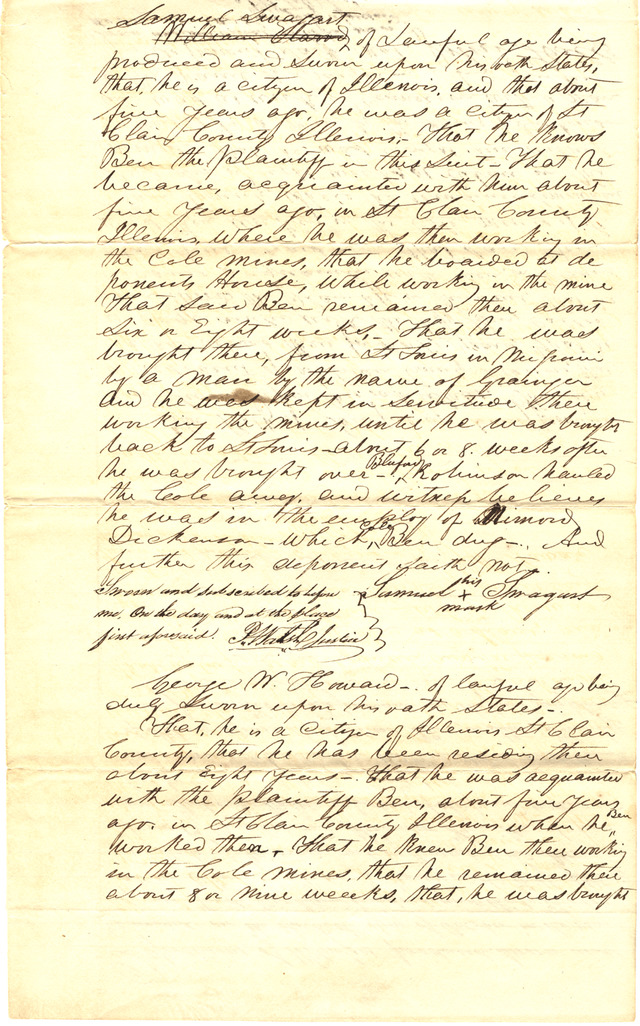 Samuel Swagart
William Havord, of Lawful age being
produced and Sworn upon his oath States,
that, he is a citizen of Illenois, and that about
five years ago, he was a citizen of St
Clair County Illenois, - That he knows
Ben the plaintiff in this Suit - That he
became, acquainted with him about
five Years ago, in St Clair County
Illenois, where he was then working in
the Cole mines, that he boarded at de
ponents House, while working in the mine
That said Ben remained there about
Six or Eight weeks, - That he was
brought there, from St Louis in Missouri
by a man by the name of Grainger
And he was kept in Servitude there
working the mines, until he was brought
back to St Louis - about 6 or 8. weeks after
he was brought over - Bluford Robinson hauled
the Cole away, and witness believes
he was in the employ of
Dickenson - which Cole, Ben dug -. And
further this deponent saith not.
Sworn and subscribed to before
me, On the day and at the place
first aforesaid. P. Walsh Justice
Samuel his + mark Swagart
George W. Howard -. of lawful age being
duly Sworn upon his oath States -.
That, he is a citizen of Illenois St Clair
County, that he has been residing there
about Eight years -. That he was acquainted
with the plaintiff Ben, about five years
ago. in St Clair County Illenois when he "Ben
worked there, - that he knew Ben there working
in the Cole mines, that he remained there
about 8 or nine weecks, that, he was brought